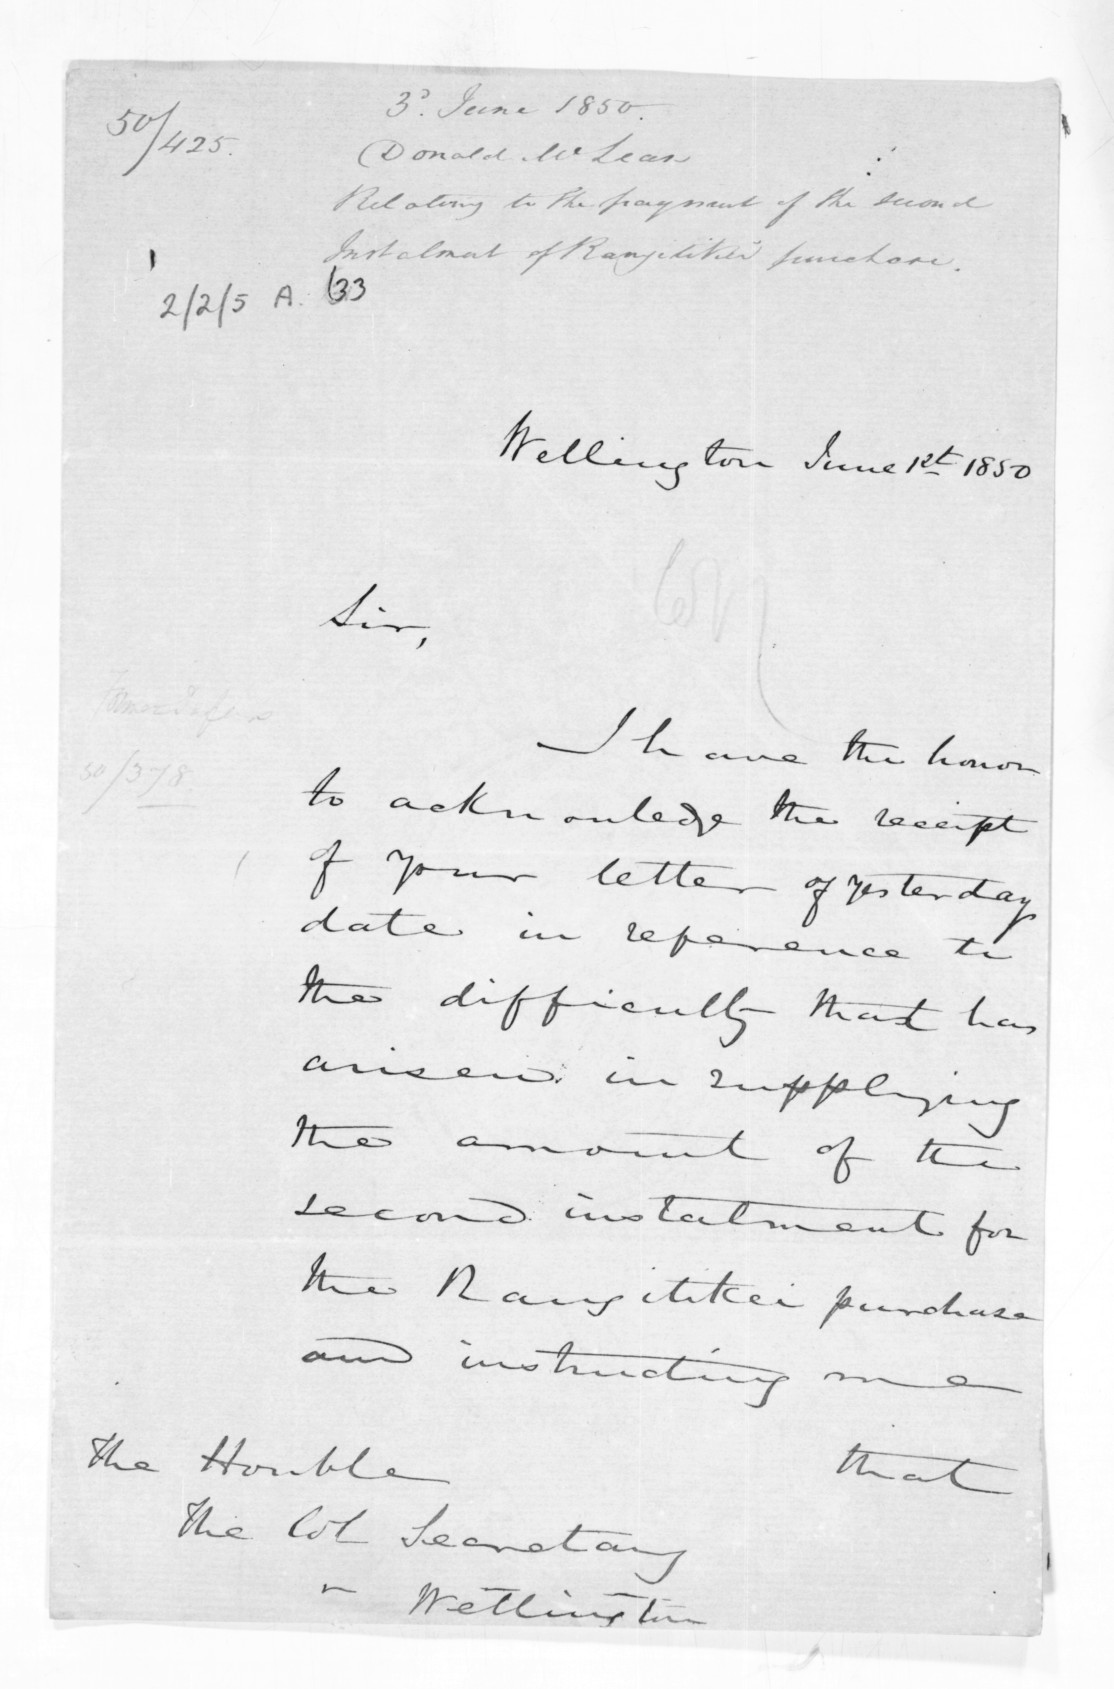 50/425.
3d. June 1850.
Donald McLean
Relating to the payment of the second
Instalment of Rangitikei purchase.
2/2/5 A. 33
Wellington June 1st 1850
Sir,
50/378.
I have the honor
to acknowledge the receipt
of your letter of yesterdays
date in reference to
the difficulty that has
arisen in supplying
the amount of the
second instalment for
the Rangitikei purchase
and instructing me
that
The Honble
The Col Secretary
Wellington